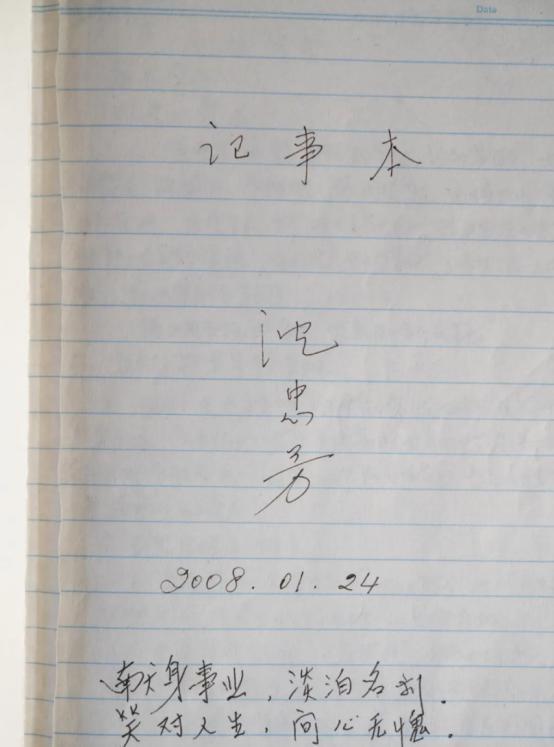 Date
记事本
沈
忠
芳
2008.01.24
献身事业，淡泊名利．
笑对人生，问心无愧．